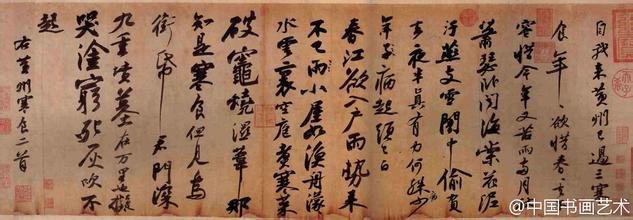 自我來黃州已過三寒
食年〻欲惜春〻去不
容惜今年又苦雨兩月秋
蕭瑟卧聞海棠花泥
汙燕支雪闇中偷負
去夜半真有力何殊少
年子病起頭已白
春江欲入户雨勢來
不已雨小屋如漁舟濛〻
水雲裏空庖煮寒菜
破竈燒濕葦那
知是寒食但見烏
銜帋君門深
九重墳墓在万里也擬
哭塗窮死灰吹不
起
右黃州寒食二首
@中国书画艺术